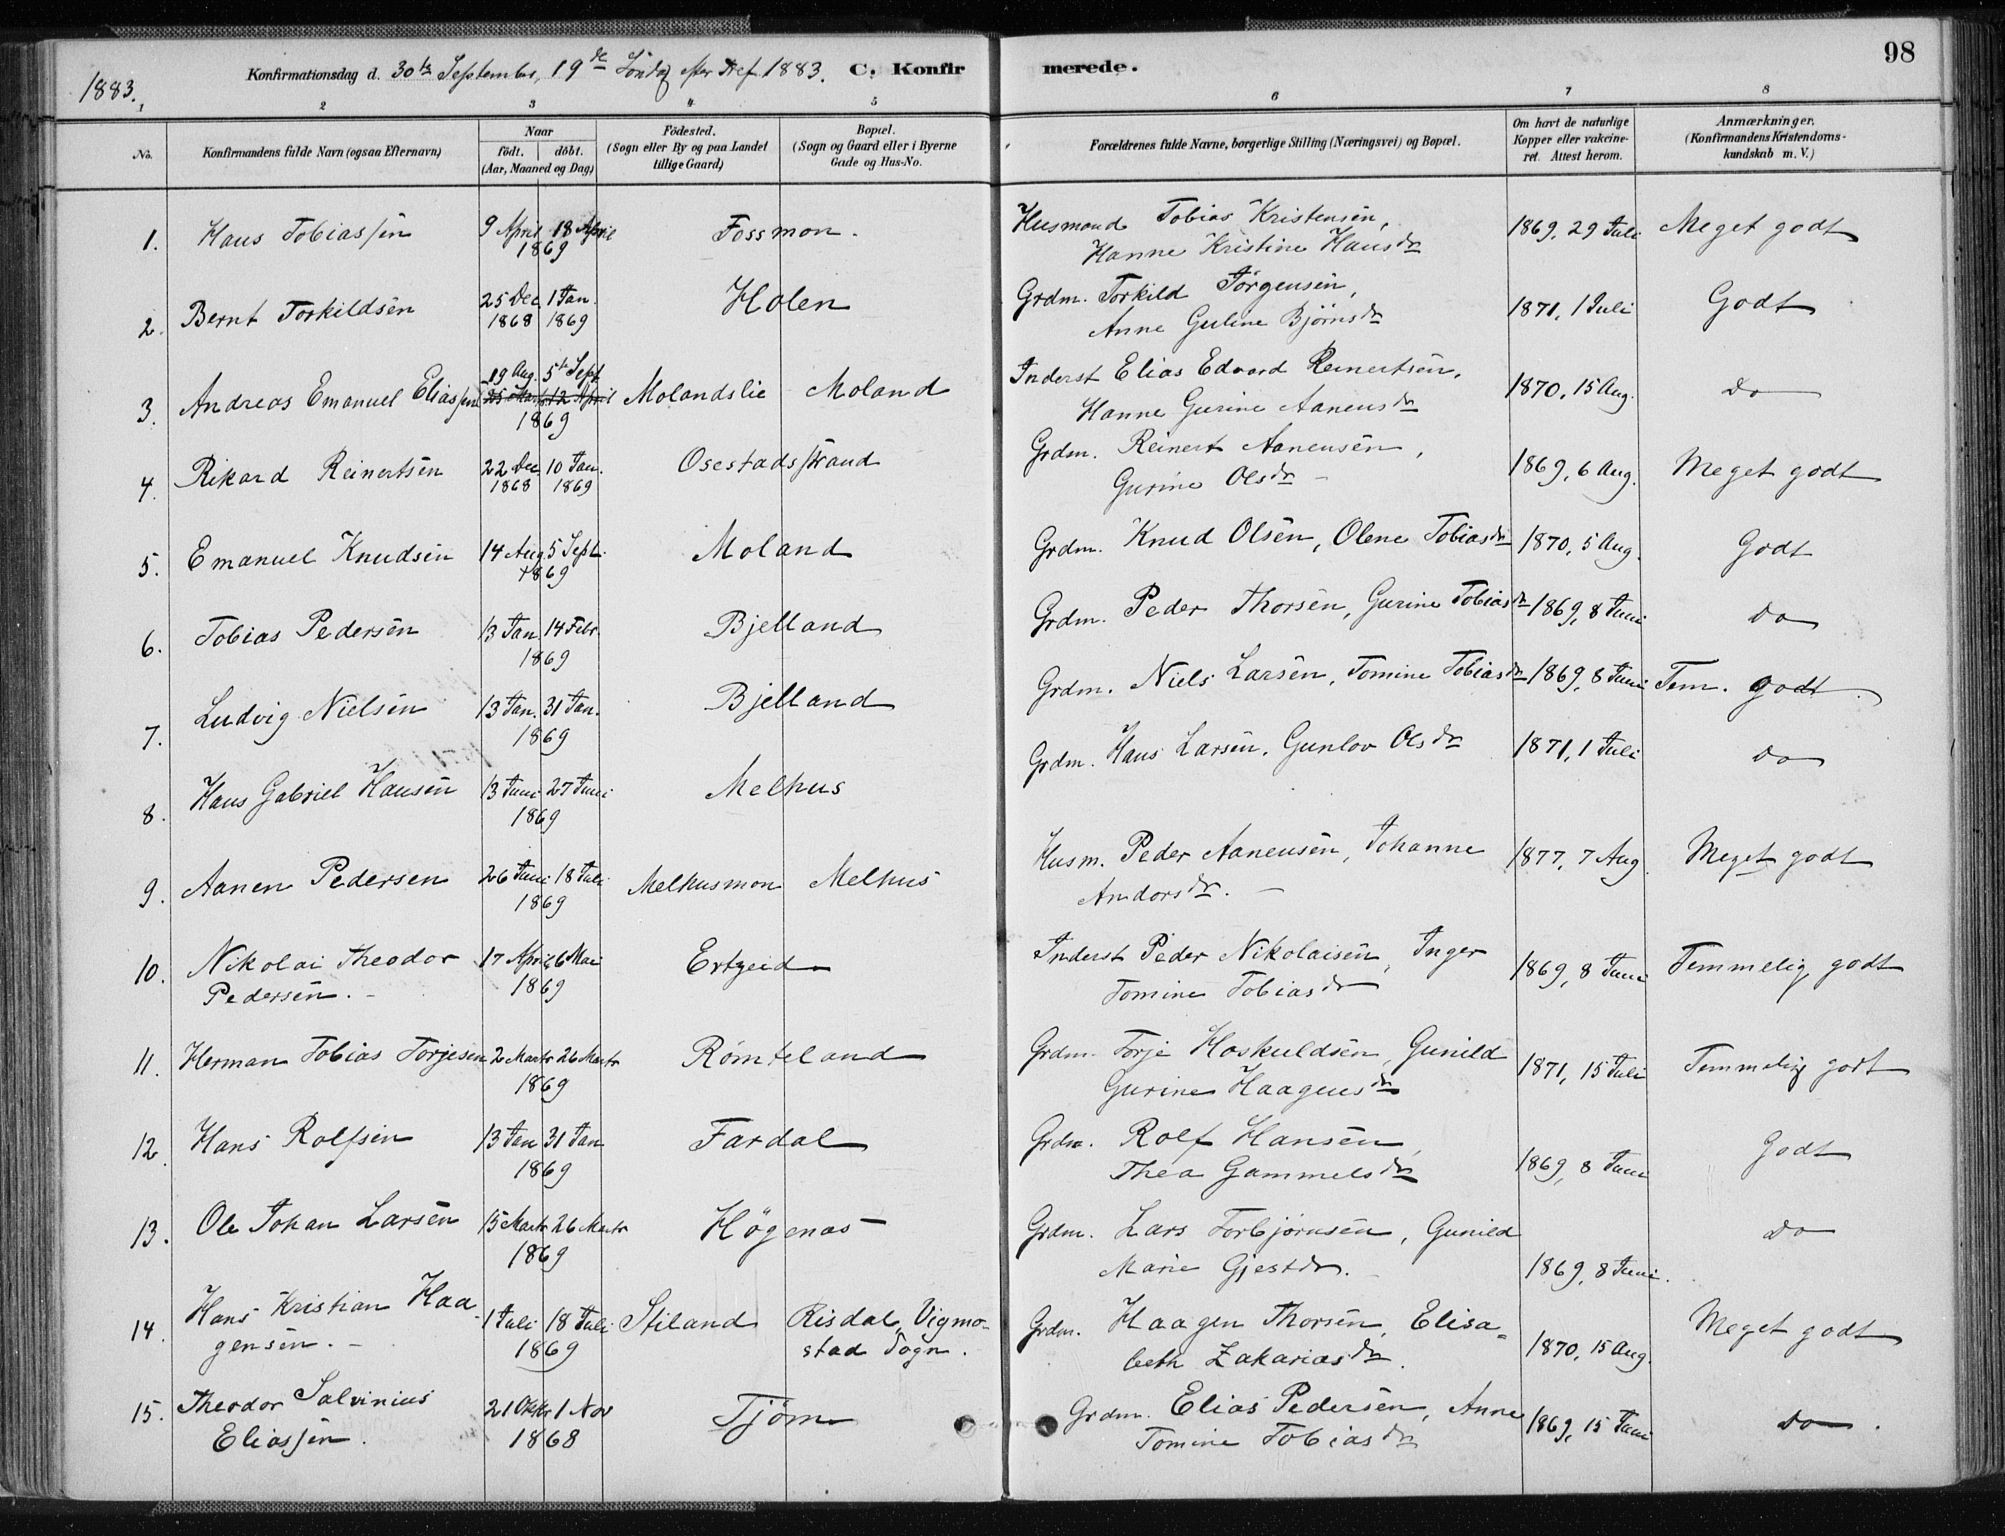 98
1883.
Konfirmationsdag d. 30te September, 19de Søndag efter Tref. 1883. C. Konfirmerede.
1 2 3 4 5 6 7 8
No. Konfirmandens fulde Navn (ogsaa Efternavn) Naar födt. döbt. (Aar, Maaned og Dag) Födested. (Sogn eller By og paa Landet tillige Gaard) Bopæl. (Sogn og Gaard eller i Byerne Gade og Hus-No. Forældrenes fulde Navne, borgerlige Stilling (Næringsvei) og Bopæl. Om havt de naturlige Kopper eller vakcineret. Attest herom. Anmærkninger. (Konfirmandens Kristendomskundskab m. V.)
1. Hans Tobiassen 9 April 18 April 1869 Fossmon. Husmand Tobias Kristensen, Hanne Kristine Hansdr 1869, 29 Juli Meget godt
2. Bernt Torkildsen 25 Dec. 1868 1 Jan. 1869 Holen Grdm. Torkild Jörgensen, Anne Guline Björnsdr 1871, 1 Juli Godt
3. Andreas Emanuel Eliassen 19 Aug. 5te Sept 25 Marts 12 April 1869 Molandslie Moland Inderst Elias Edvard Reinertsen, Hanne Gurine Aanensdr 1870, 15 Aug. Do
4. Rikard Reinertsen 22 Dec 1868 10 Jan. 1869 Osestadstrand Grdm. Reinert Aanensen, Gurine Olsdr 1869, 6 Aug. Meget godt
5. Emanuel Knudsen 14 Aug 5 Sept. 1869 Moland Grdm. Knud Olsen, Olene Tobiasdr 1870, 5 Aug. Godt
6. Tobias Pedersen 13 Jan 14 Febr. 1869 Bjelland Grdm. Peder Thorsen, Gurine Tobiasdr 1869, 8 Juni Do
7. Ludvig Nielsen 13 Jan. 31 Jan. 1869 Bjelland Grdm. Niels Larsen, Tomine Tobiasdr 1869, 8 Juni Tem. godt.
8. Hans Gabriel Hansen 13 Juni 27 Juni 1869 Melhus Grdm. Hans Larsen, Gunlov Olsdr 1871, 1 Juli Do
9. Aanen Pedersen 26 Juni 18 Juli 1869 Melhusmon Melhus Husm. Peder Aanensen, Johanne Andorsdr. 1877, 7 Aug. Meget godt
10. Nikolai Theodor Pedersen. 17 April 6 Mai 1869 Ertzeid Inderst Peder Nikolaisen, Inger Tomine Tobiasdr 1869, 8 Juni Temmelig godt
11. Herman Tobias Torjesen 2 Marts 26 Marts 1869 Römteland Grdm. Torje Hoskuldsen, Gunild Gurine Haagensdr 1871, 15 Juli Temmelig godt
12. Hans Rolfsen 13 Jan 31 Jan 1869 Fardal Grdm. Rolf Hansen, Thea Gammelsdr 1869, 8 Juni Godt
13. Ole Johan Larsen 15 Marts 26 Marts 1869 Högenas Grdm. Lars Torbjörnsen, Gunild Marie Gjestdr. 1869, 8 Juni. Do
14. Hans Kristian Haagensen. 1 Juli 18 Juli 1869 Stiland Risdal, Vigmostad Sogn. Grdm. Haagen Thorsen, Elisabeth Zakariasdr. 1870, 15 Aug. Meget godt
15. Theodor Salvinius Eliassen. 21 Oktbr 1 Nov 1868 Tjöm Grdm. Elias Pedersen, Anne Tomine Tobiasdr 1869, 15 Juni Do.